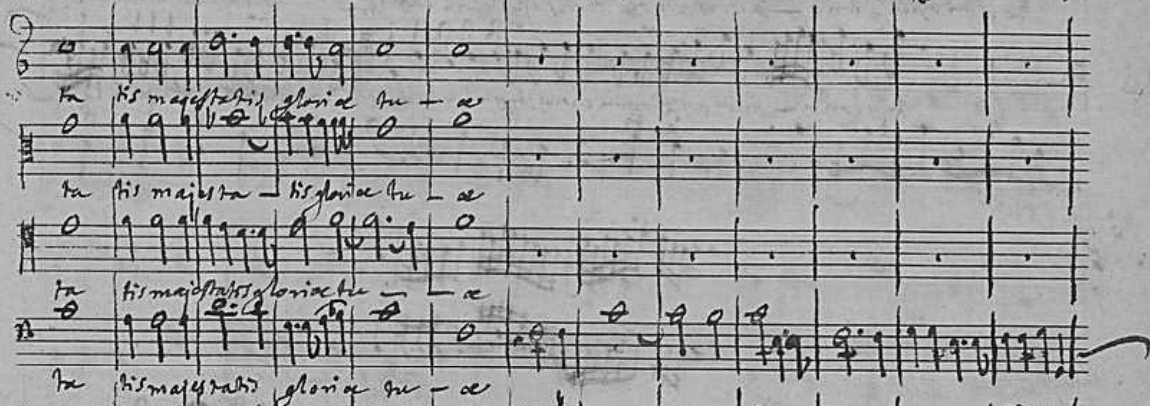 ta tis majestatis gloriæ tu - æ
ta tis majesta - tis gloriæ tu - æ
ta tis majestatis gloriæ tu - - æ
ta tis majestatis gloriæ tu - æ